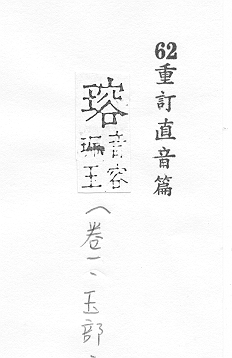 62重訂直音篇
瑢
音容
珮玉
（卷一、玉部、